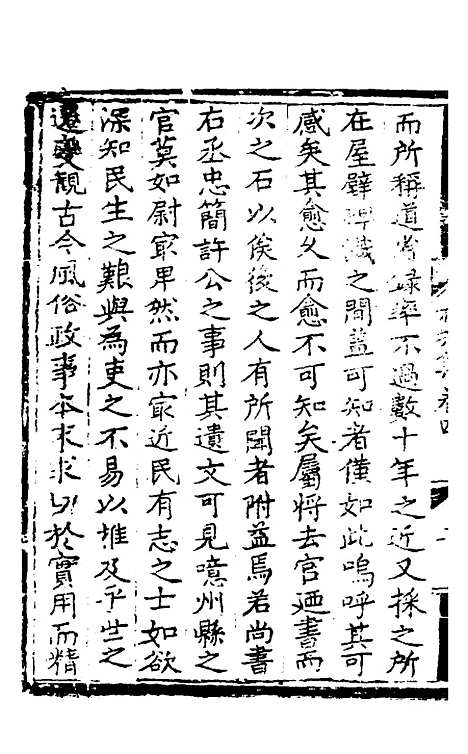 而所稱道省錄率不過數十年之近又採之所
在屋壁碑識之間蓋可知者僅如此嗚呼其可
感矣其愈久而愈不可知矣屬將去官廼書而
次之石以俟後之人有所聞者附益焉若尚書
右丞忠簡許公之事則其遺文可見噫州縣之
官莫如尉㝡卑然而亦㝡近民有志之士如欲
深知民生之艱與為吏之不易以推及乎世之
遷變觀古今風俗政事本末求切於實用而精
卷四